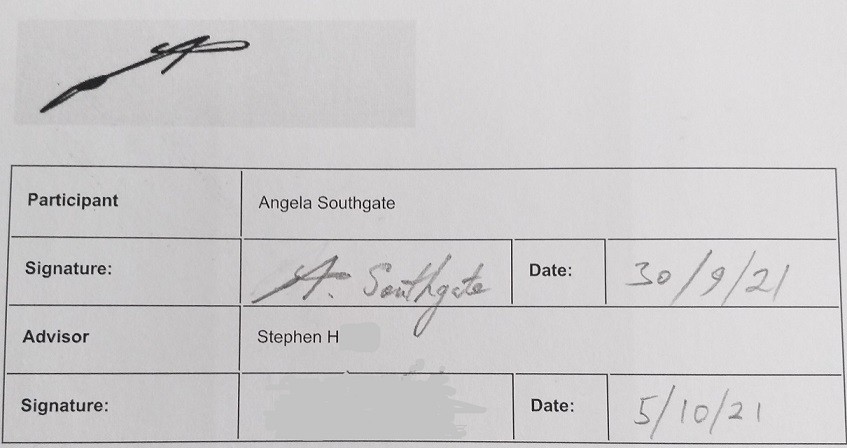 Participant Angela Southgate
Signature: A. Southgate Date: 30/9/21
Advisor Stephen H
Signature: Date: 5/10/21